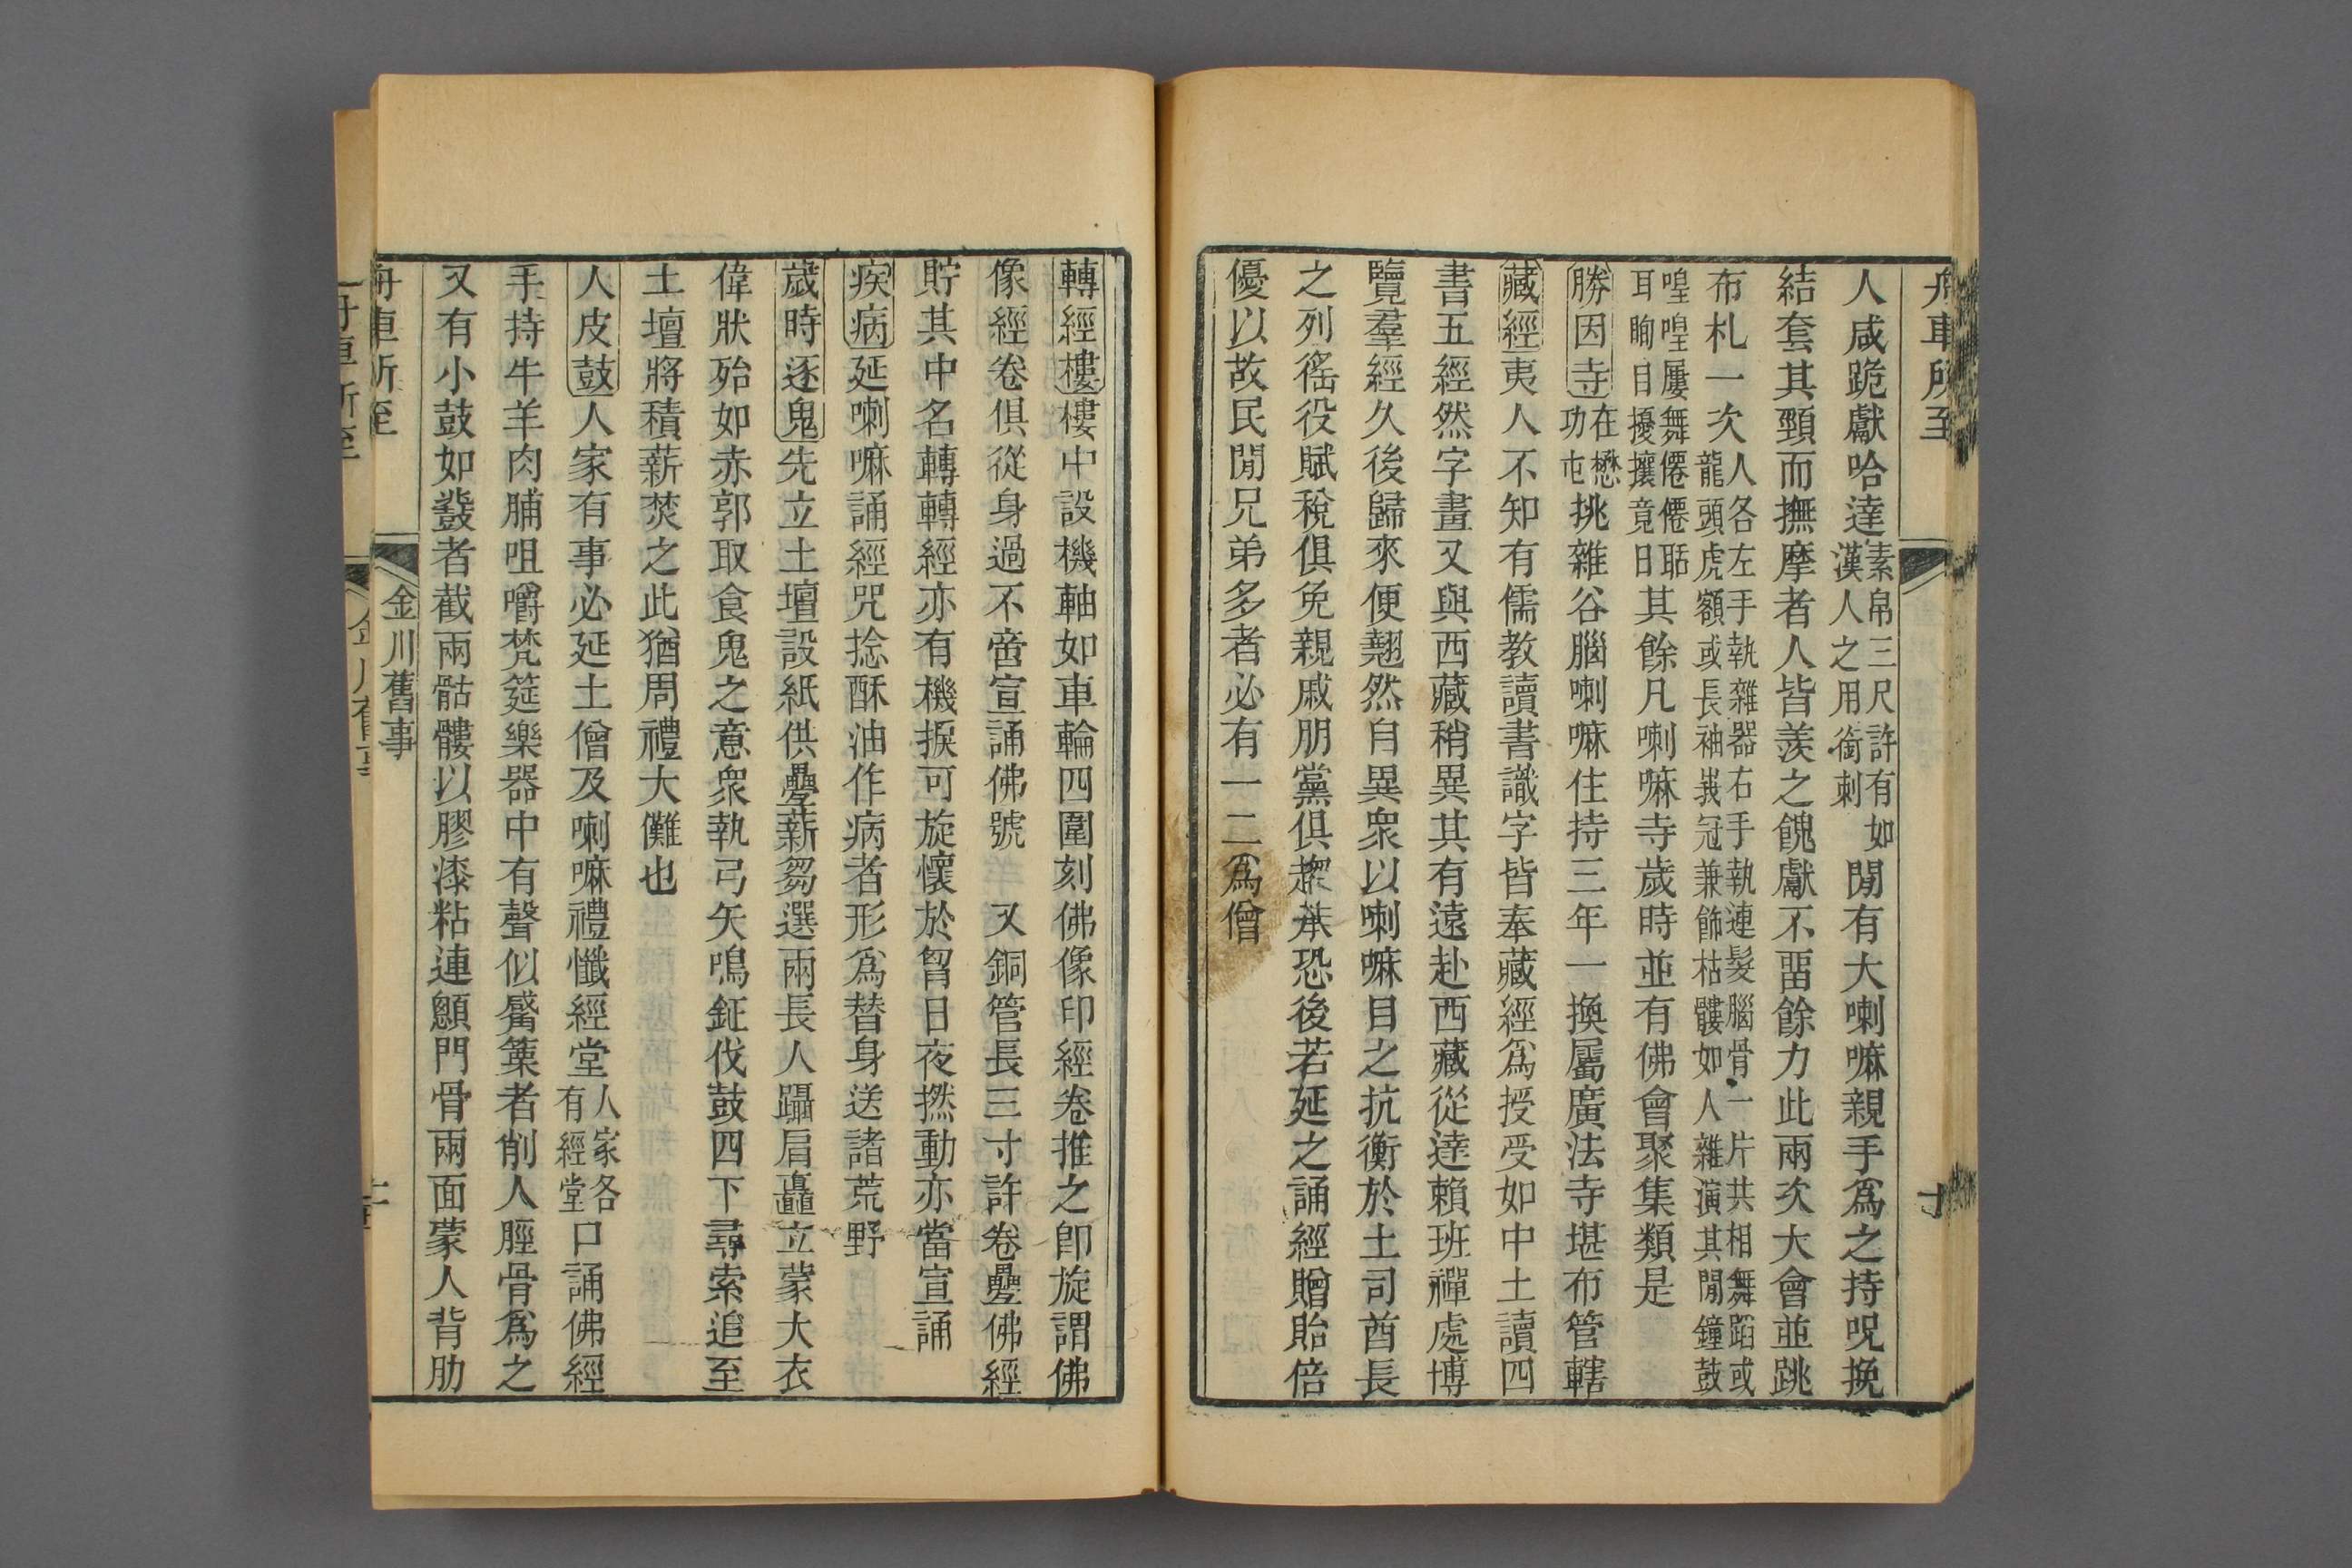 舟車所至
十
人咸跪獻哈達素帛三尺許有如漢人之用銜刺閒有大喇嘛親手爲之持呪挽
結套其頸而撫摩者人皆羨之餽獻不畱餘力此兩次大會並跳
布札一次人各左手執雜器右手執連髮腦骨一片共相舞蹈或龍頭虎額或長袖峩冠兼飾枯髏如人雜演其閒鐘鼓
喤喤屢舞僊僊聒耳眴目擾攘竟日其餘凡喇嘛寺歲時並有佛會聚集類是
勝因寺在懋功屯挑雜谷腦喇嘛住持三年一換屬廣法寺堪布管轄
藏經夷人不知有儒教讀書識字皆奉藏經爲授受如中土讀四
書五經然字畫又與西藏稍異其有遠赴西藏從達賴班禪處博
覽羣經久後歸來便翹然自異衆以喇嘛目之抗衡於土司酋長
之列徭役賦稅俱免親戚朋黨俱趨承恐後若延之誦經贈貽倍
優以故民閒兄弟多者必有一二爲僧
轉經樓樓中設機軸如車輪四圍刻佛像印經卷推之卽旋謂佛
像經卷俱從身過不啻宣誦佛號 又銅管長三寸許卷疊佛經
貯其中名轉轉經亦有機捩可旋懷於胷日夜撚動亦當宣誦
疾病延喇嘛誦經咒捻酥油作病者形爲替身送諸荒野
歲時逐鬼先立土壇設紙供疊薪芻選兩長人躡肩矗立蒙大衣
偉狀殆如赤郭取食鬼之意衆執弓矢鳴鉦伐鼓四下尋索追至
土壇將積薪焚之此猶周禮大儺也
人皮鼓人家有事必延土僧及喇嘛禮懺經堂人家各有經堂口誦佛經
手持牛羊肉脯咀嚼梵筵樂器中有聲似觱篥者削人脛骨爲之
又有小鼓如鼗者截兩骷髏以膠漆粘連顖門骨兩面蒙人背肋
舟車所至
金川舊事